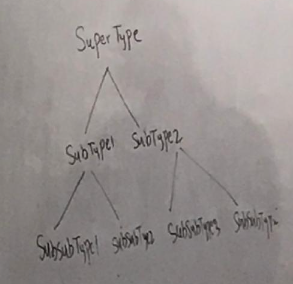 SuperType
SubType1 SubType2
SubSubType1 SubSubTyp2 SubSubType3